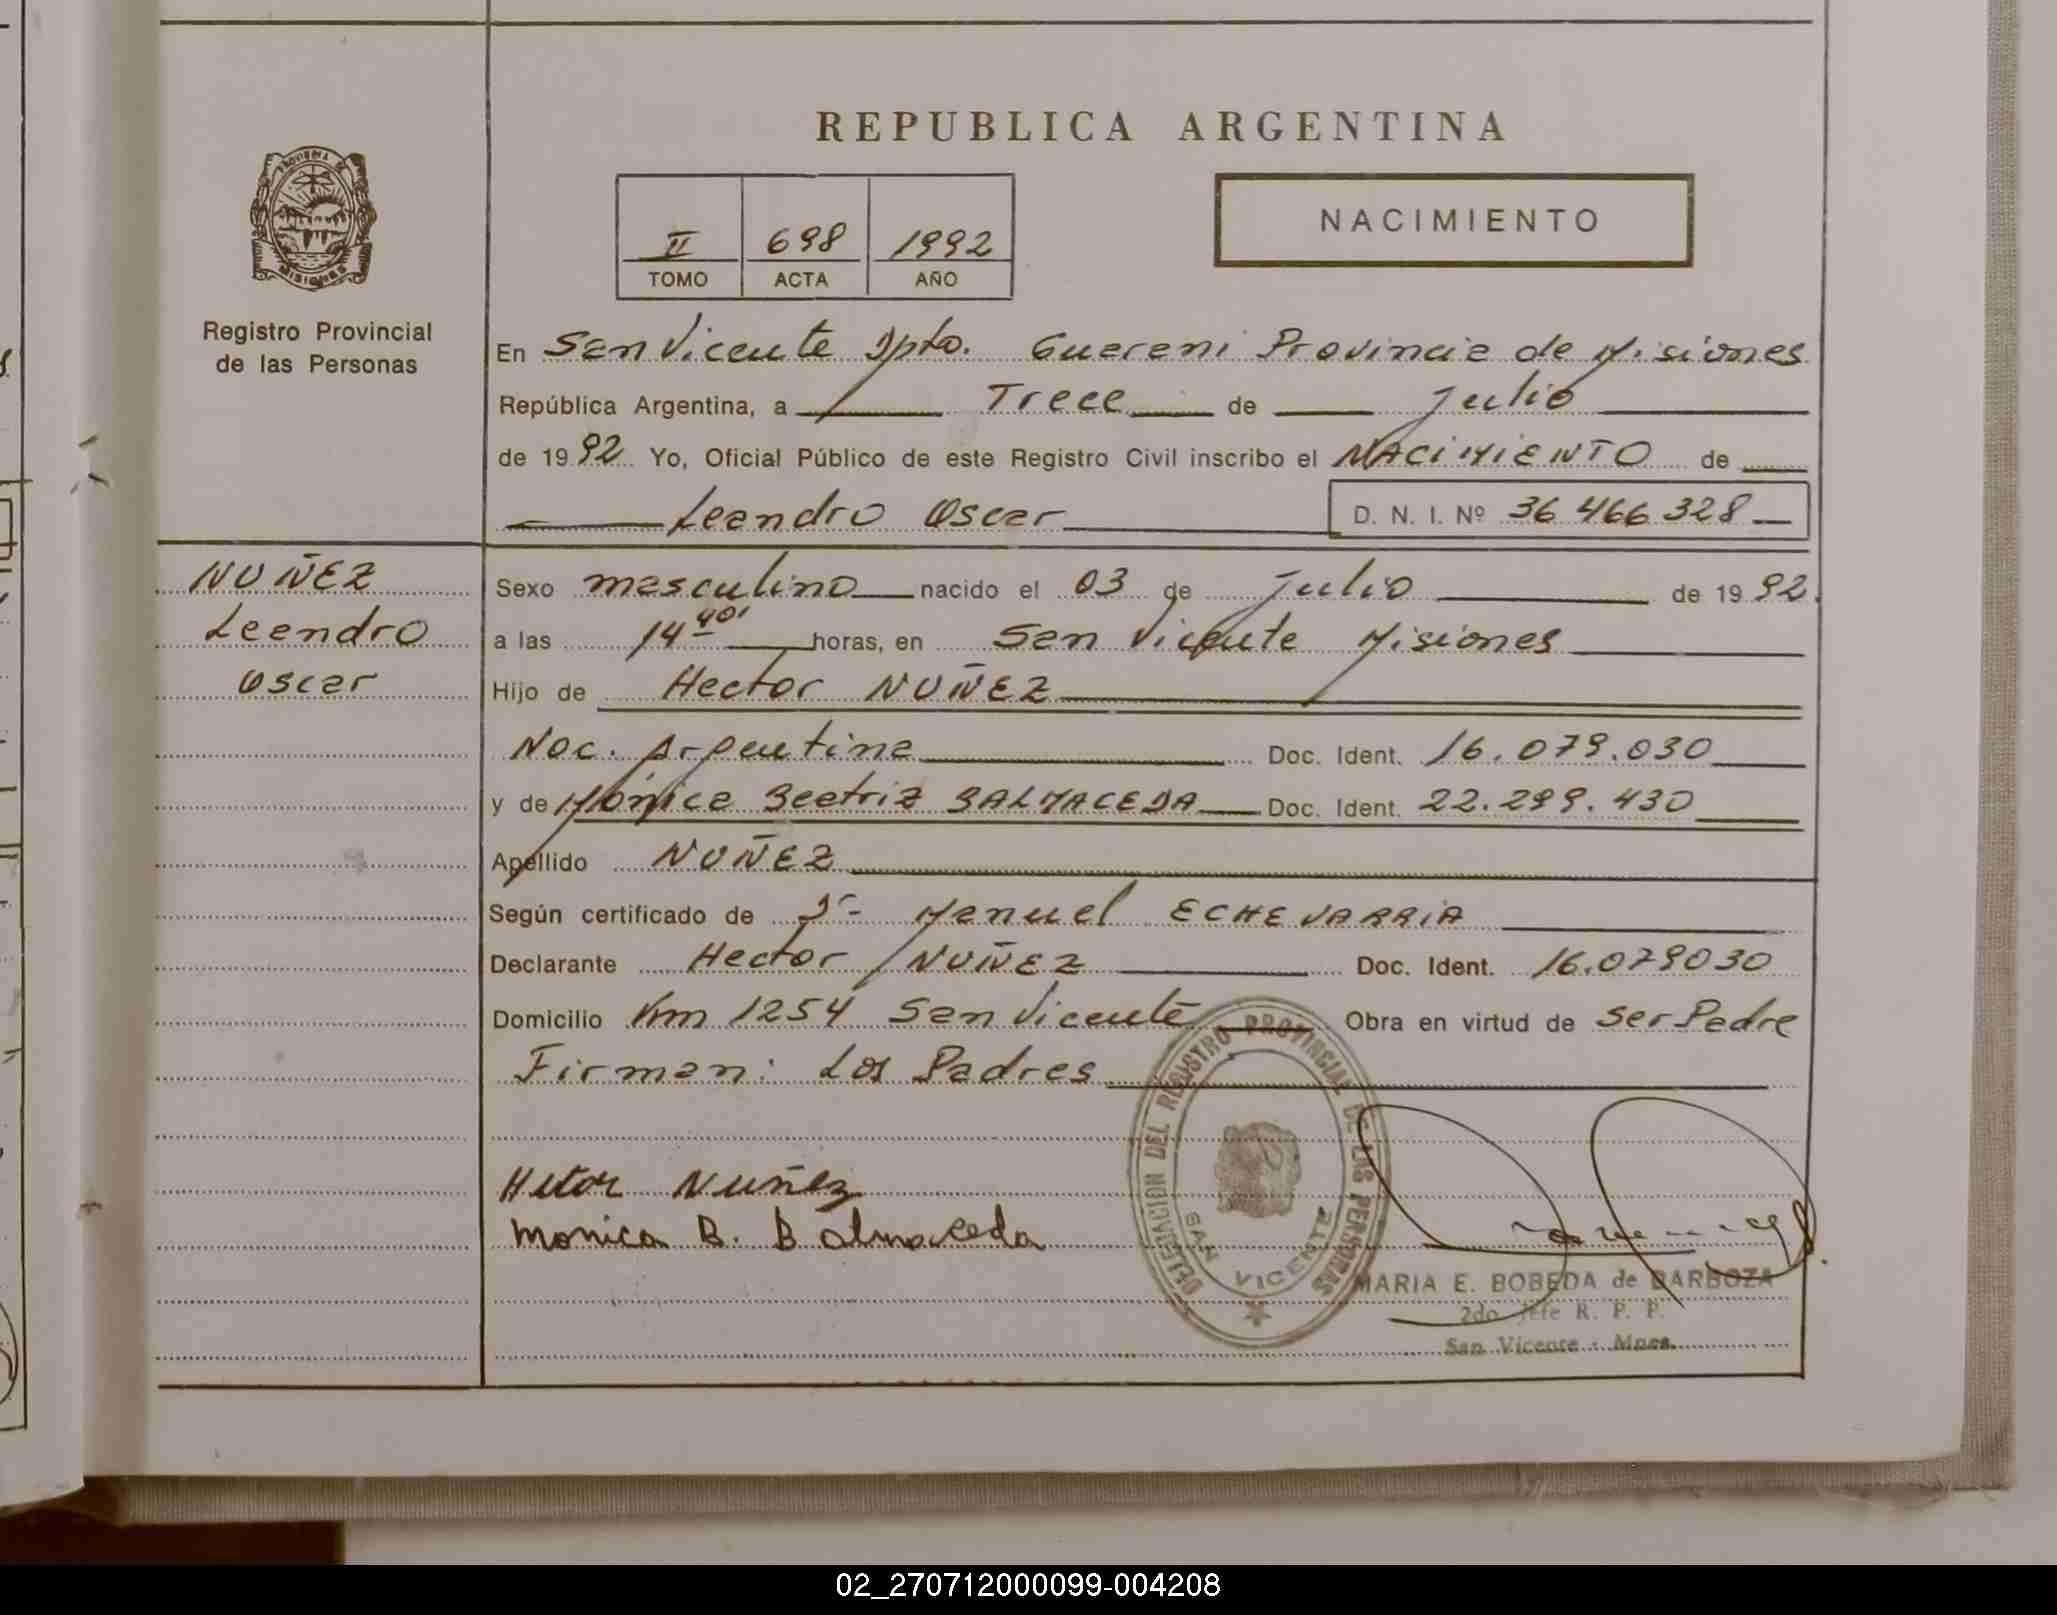 REPUBLICA ARGENTINA
PROVINCIA DE MISIONES
II 698 1992
TOMO ACTA AÑO
NACIMIENTO
Registro Provincial
de las Personas
En San Vicente Dpto. Guarani Provincia de Misiones
República Argentina, a Trece de Julio
de 1992. Yo, Oficial Público de este Registro Civil inscribo el NACIMIENTO de
Leandro Oscar D. N. I. Nº 36 466 328
NUÑEZ
Leandro
Oscar
Sexo masculino nacido el 03 de Julio de 1992.
a las 14 40' horas, en San Vicente Misiones
Hijo de Hector NUÑEZ
Nac. Argentina Doc. Ident. 16.079.030
y de Mónica Beatriz BALMACEDA Doc. Ident. 22.299.430
Apellido NUÑEZ
Según certificado de Dr. Manuel ECHEVARRIA
Declarante Hector NUÑEZ Doc. Ident. 16.079030
Domicilio Km 1254 San Vicente Obra en virtud de ser Padre
Firman: Los Padres
Hetor Nuñez
Monica B. Balmaceda
DELEGACION DEL REGISTRO PROVINCIAL DE LAS PERSONAS
SAN VICENTE
MARIA E. BOBEDA de BARBOZA
2do Jefe R. P. P.
San Vicente - Mnes.
02_270712000099-004208